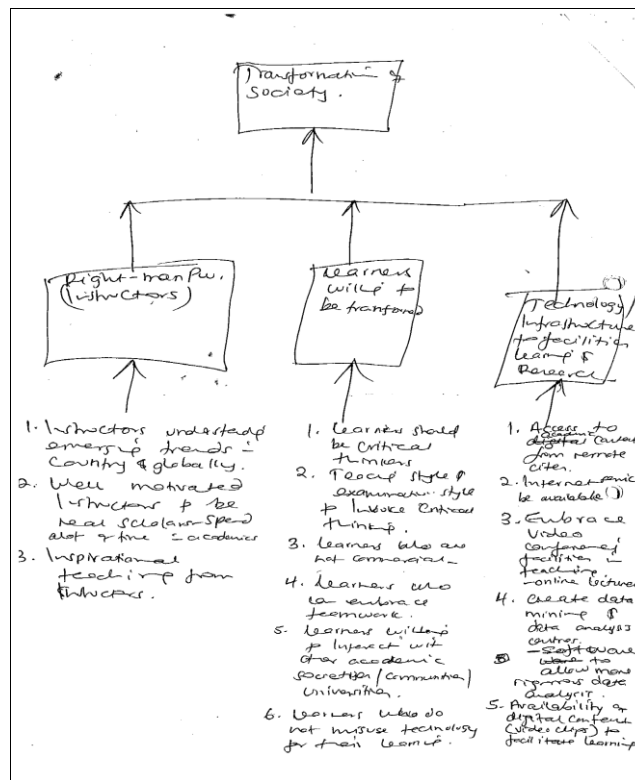 Transformation of
Society.
Right-manPw.
(Instructors)
Learners
willing to
be transformed
Technology/
Infrastructure
to facilities
learning &
Research
1. Instructors understanding
emerging trends in
Country & globally.
2. Well motivated
Instructors to be
real scholars-Spend
alot of time in academics
3. Inspirational
teaching from
Instructors.
1. Learners should
be critical
thinkers
2. Teaching style &
examination style
to Invoke Critical
thinking.
3. Learners who are
not commercial
4. Learners who
can embrace
teamwork.
5. Learners willing
to Interact with
other academic
societies/communities/
Universities.
6. Learners who do
not misuse technology
for their learning.
1. Access to
academic
digital Content
from remote
cites.
2. Internet service
be available
3. Embrace
Video
conferencing
facilities in
teaching
-online lectures
4. Create data
mining &
data analysis
centres.
-Software
to
allow more
rigorous data
analysis.
5. Availability of
digital content
(video clips) to
facilitate learning